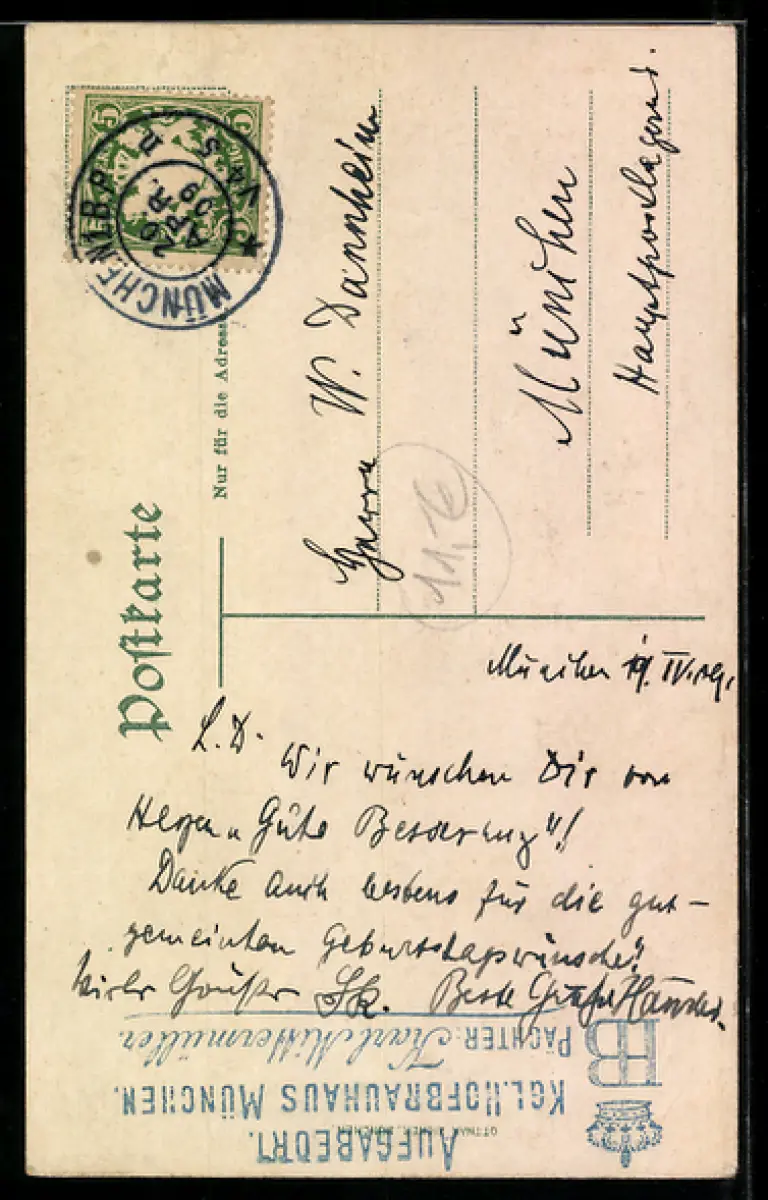 Postkarte
Nur für die Adresse
MÜNCHEN 1.B.P.
20
APR.
09
5
Herrn
W. Dannheim
München
Hauptpostlagernd.
11,16
München 19. IV. 09.
L. D. Wir wünschen Dir von
Herzen „Gute Besserung"!
Danke auch bestens für die gut-
gemeinten Geburtstagswünsche!
Viele Grüße Beste Grüße
PÄCHTER: Karl Mittermüller.
HB
KGL. HOFBRAUHAUS MÜNCHEN.
AUFGABEORT.